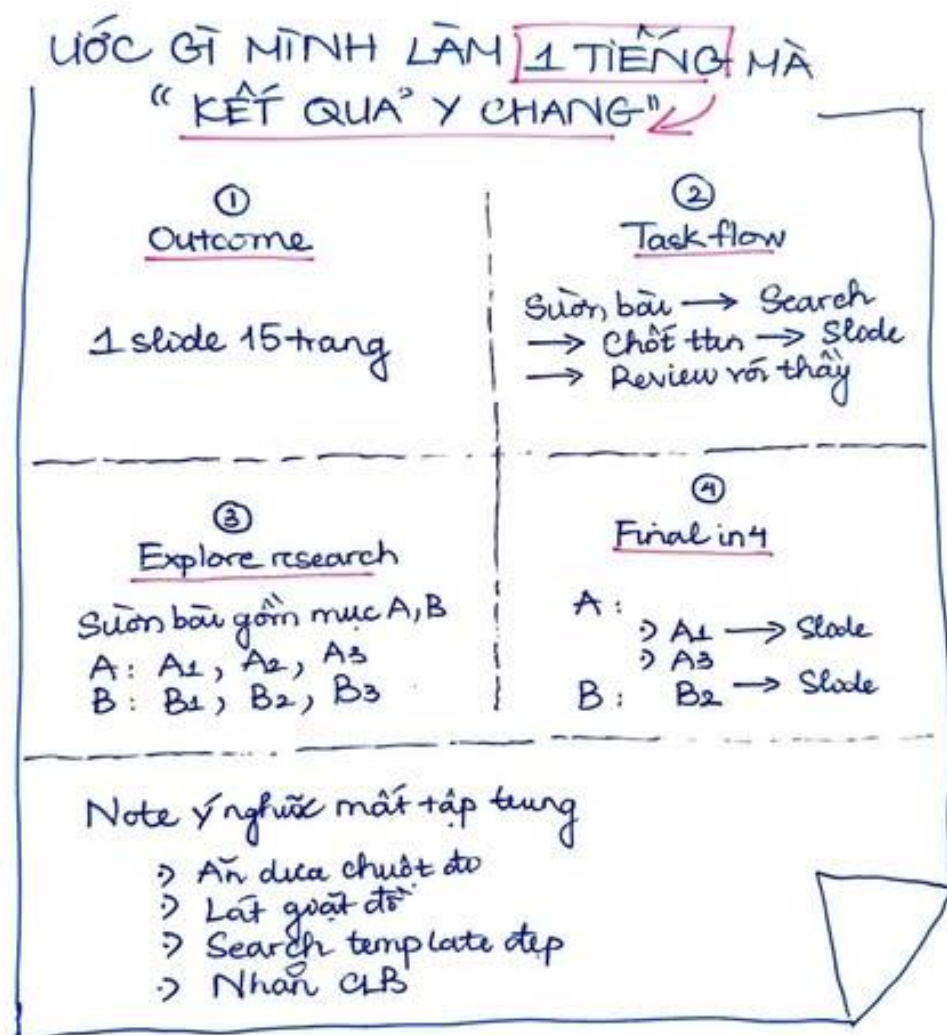 ƯỚC GÌ MÌNH LÀM 1 TIẾNG MÀ
"KẾT QUẢ Y CHANG"
①
Outcome
1 slide 15 trang
②
Task flow
Sườn bài → Search
→ Chốt ttin → Slide
→ Review với thầy
③
Explore research
Sườn bài gồm mục A, B
A: A1, A2, A3
B: B1, B2, B3
④
Final in4
A:
:) A1 → Slide
:) A3
B: B2 → Slide
Note ý nghĩ mất tập trung
:) Ăn dưa chuột đo
:) Lát giặt đồ
:) Search template đẹp
:) Nhắn CLB